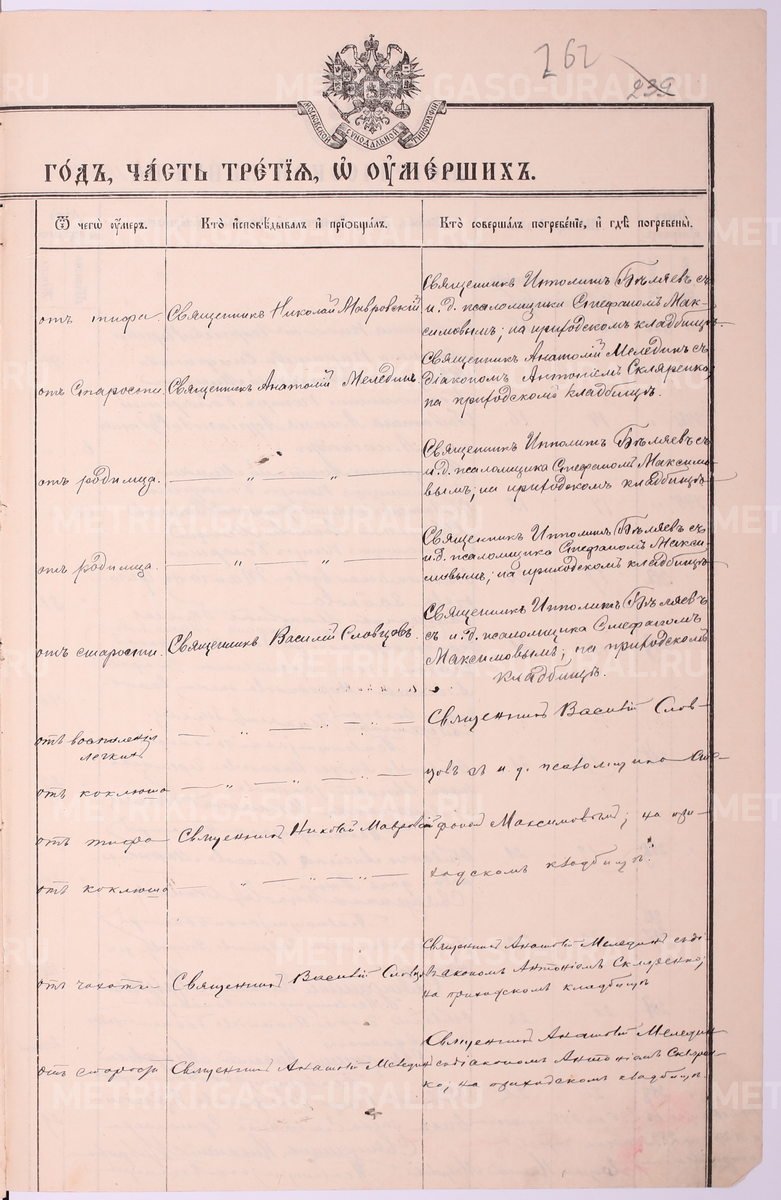 262
239
МОСКОВСКОЙ СѴНОДАЛЬНОЙ ТИПОГРАФІИ
ГО́ДЪ, ЧА́СТЬ ТРЕ́ТІѦ, Ѽ ОУ҆МЕ́РШИХЪ.
Ѿ чегѡ̀ ᲂу҆́меръ.
Кто̀ и҆сповѣ́дывалъ и҆ прїѡбща́лъ.
Кто̀ соверша́лъ погребе́нїе, и҆ гдѣ̀ погребены̀.
отъ тифа.
Священникъ Николай Мавровскій
Священникъ Ипполитъ Бѣляевъ съ
и. д. псаломщика Стефаномъ Мак-
симовымъ; на приходскомъ кладбищѣ.
отъ старости
Священникъ Анатолій Мелединъ
Священникъ Анатолій Мелединъ съ
діакономъ Антоніемъ Скляренко,
на приходскомъ кладбищѣ.
отъ родимца.
— " — " —
Священникъ Ипполитъ Бѣляевъ съ
и.д. псаломщика Стефаномъ Максимо-
вымъ; на приходскомъ кладбищѣ
отъ родимца.
— " — " —
Священникъ Ипполитъ Бѣляевъ съ
и.д. псаломщика Стефаномъ Макси-
мовымъ; на приходскомъ кладбищѣ
отъ старости.
Священникъ Василій Словцовъ.
Священникъ Ипполитъ Бѣляевъ
съ и.д. псаломщика Стефаномъ
Максимовымъ; на приходскомъ
кладбищѣ.
отъ воспаленія
легкихъ
— " — " — " —
Священникъ Василій Слов-
отъ коклюша
— " — " — " —
цовъ съ и. д. псаломщика Сте-
отъ тифа
Священникъ Николай Мавровскій
фаномъ Максимовымъ; на при-
отъ коклюша
— " — " — " —
ходскомъ кладбищѣ.
отъ чахотки
Священникъ Василій Словцовъ
Священникъ Анатолій Мелединъ съ ді-
акономъ Антоніемъ Скляренко;
на приходскомъ кладбищѣ
отъ старости
Священникъ Анатолій Мелединъ
Священникъ Анатолій Мелединъ
съ діакономъ Антоніемъ Скларен-
ко; на приходскомъ кладбищѣ.
METRIKI.GASO-URAL.RU